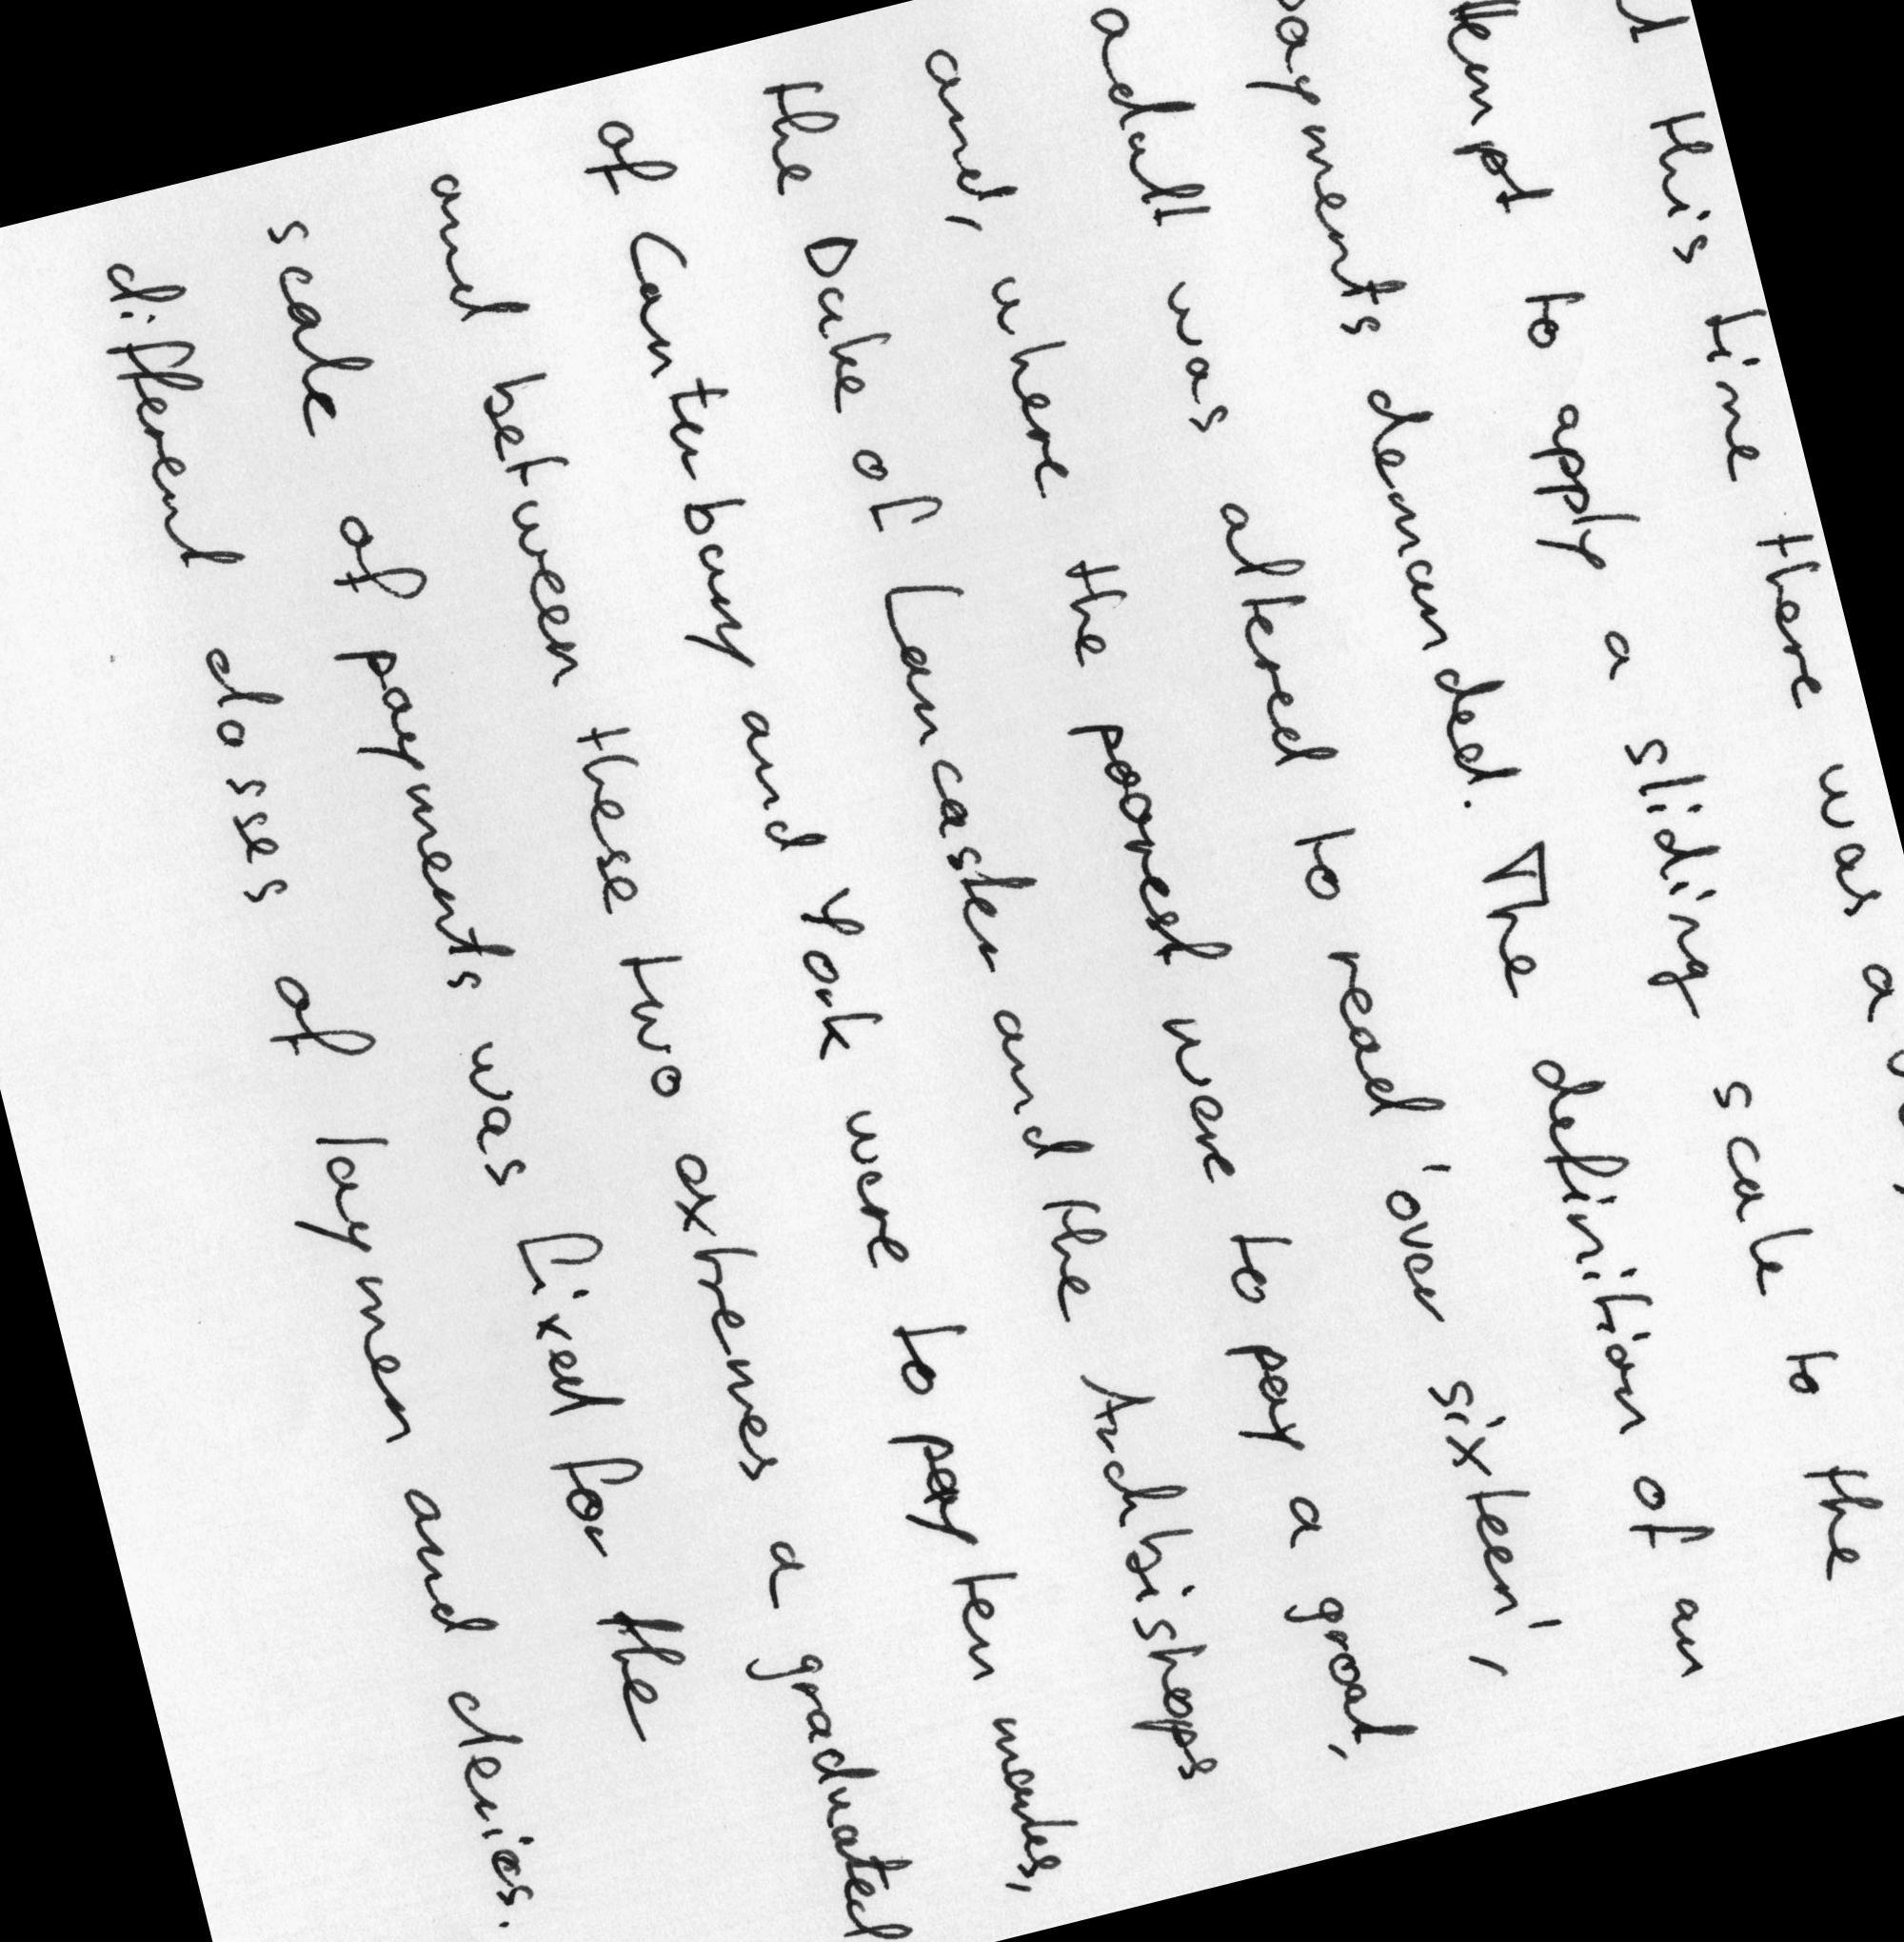 this time there was a
to apply a sliding scale to the
payments demanded. The definition of an
adult was altered to read 'over sixteen',
and, where the poorest were to pay a groat,
the Duke of Lancaster and the Archbishops
of Canterbury and York were to pay ten marks,
and between these two extremes a graduated
scale of payments was fixed for the
different closses of laymen and clerics.